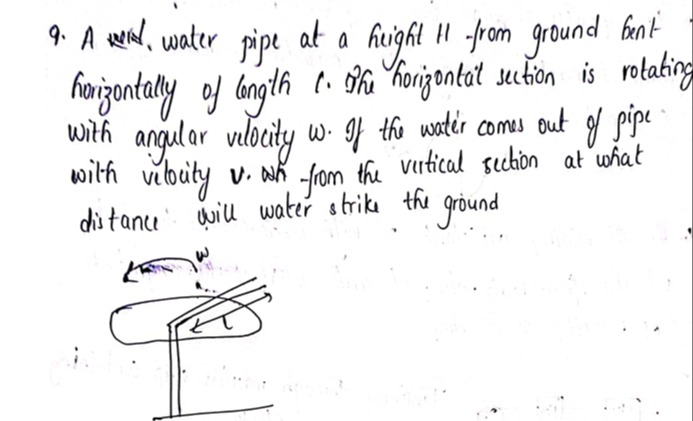 9. A water pipe at a height H from ground bent
horizontally of length l. The horizontal section is rotating
with angular velocity w. If the water comes out of pipe
with velocity v. from the vertical section at what
distance will water strike the ground
w
l